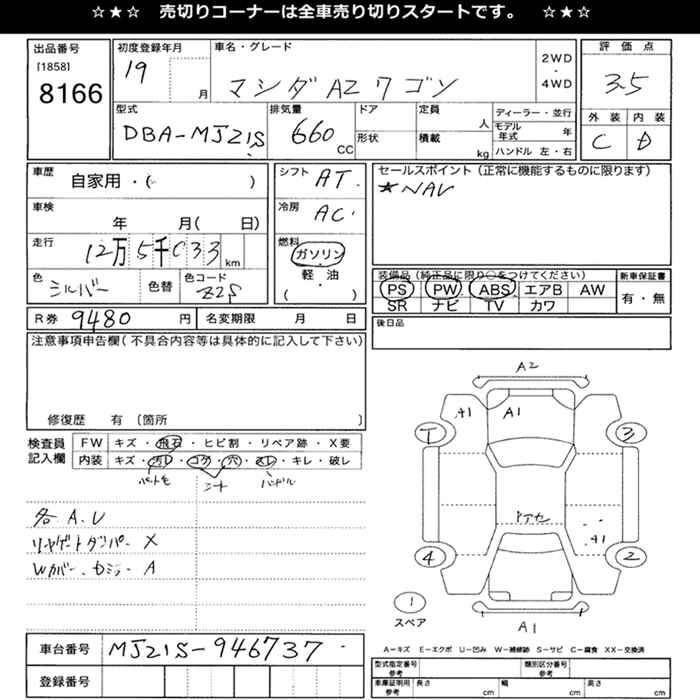 ☆★☆ 売切りコーナーは全車売り切りスタートです。 ☆★☆
出品番号
[1858]
8166
初度登録年月
19
月
車名・グレード
マシダ AZワゴン
2WD
・
4WD
評価点
3.5
型式
DBA-MJ21S
排気量
660
CC
ドア
形状
定員
人
積載
kg
ディーラー・並行
モデル年式 年
ハンドル 左・右
外装
C
内装
D
車歴
自家用・( )
シフト
AT
セールスポイント(正常に機能するものに限ります)
★NAV
車検
年 月( 日)
冷房
AC
走行
12万5千033km
燃料
ガソリン
・
軽・油
( )
色
シルバー
色替
色コード
Z2S
装備品(純正品に限り○をつけてください)
PS PW ABS エアB AW
SR ナビ TV カワ
新車保証書
有・無
R券 9480 円
名変期限 月 日
後日品
注意事項申告欄(不具合内容等は具体的に記入して下さい)
修復歴 有 〔箇所 〕
検査員記入欄
FW キズ・飛石・ヒビ割・リペア跡・X要
内装 キズ・汚レ・コゲ・穴・スレ・キレ・破レ
シート
ハンドル
各A.U
リヤゲートダンパー X
Wカバー、ドミラー A
A2
A1
A1
T
3
ドアカセ
A1
4
2
1
スペア
A1
車台番号 MJ21S-946737
登録番号
A-キズ E-エクボ U-凹み W-補修跡 S-サビ C-腐食 XX-交換済
型式指定番号
参考
類別区分番号
参考
車庫証明用
参考
長さ cm
幅 cm
高さ cm